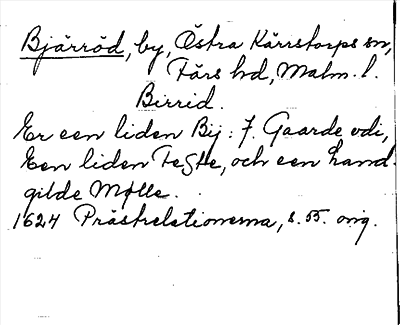 Bjärröd, by, Östra Kärrstorps sn,
Färs hd, Malm. l.
Birrid.
Er een liden Bij: 7. Gaarde udi,
Een liden Feste, och een hand-
gilde Mølle.
1624 Prästrelationerna, s. 55. orig.